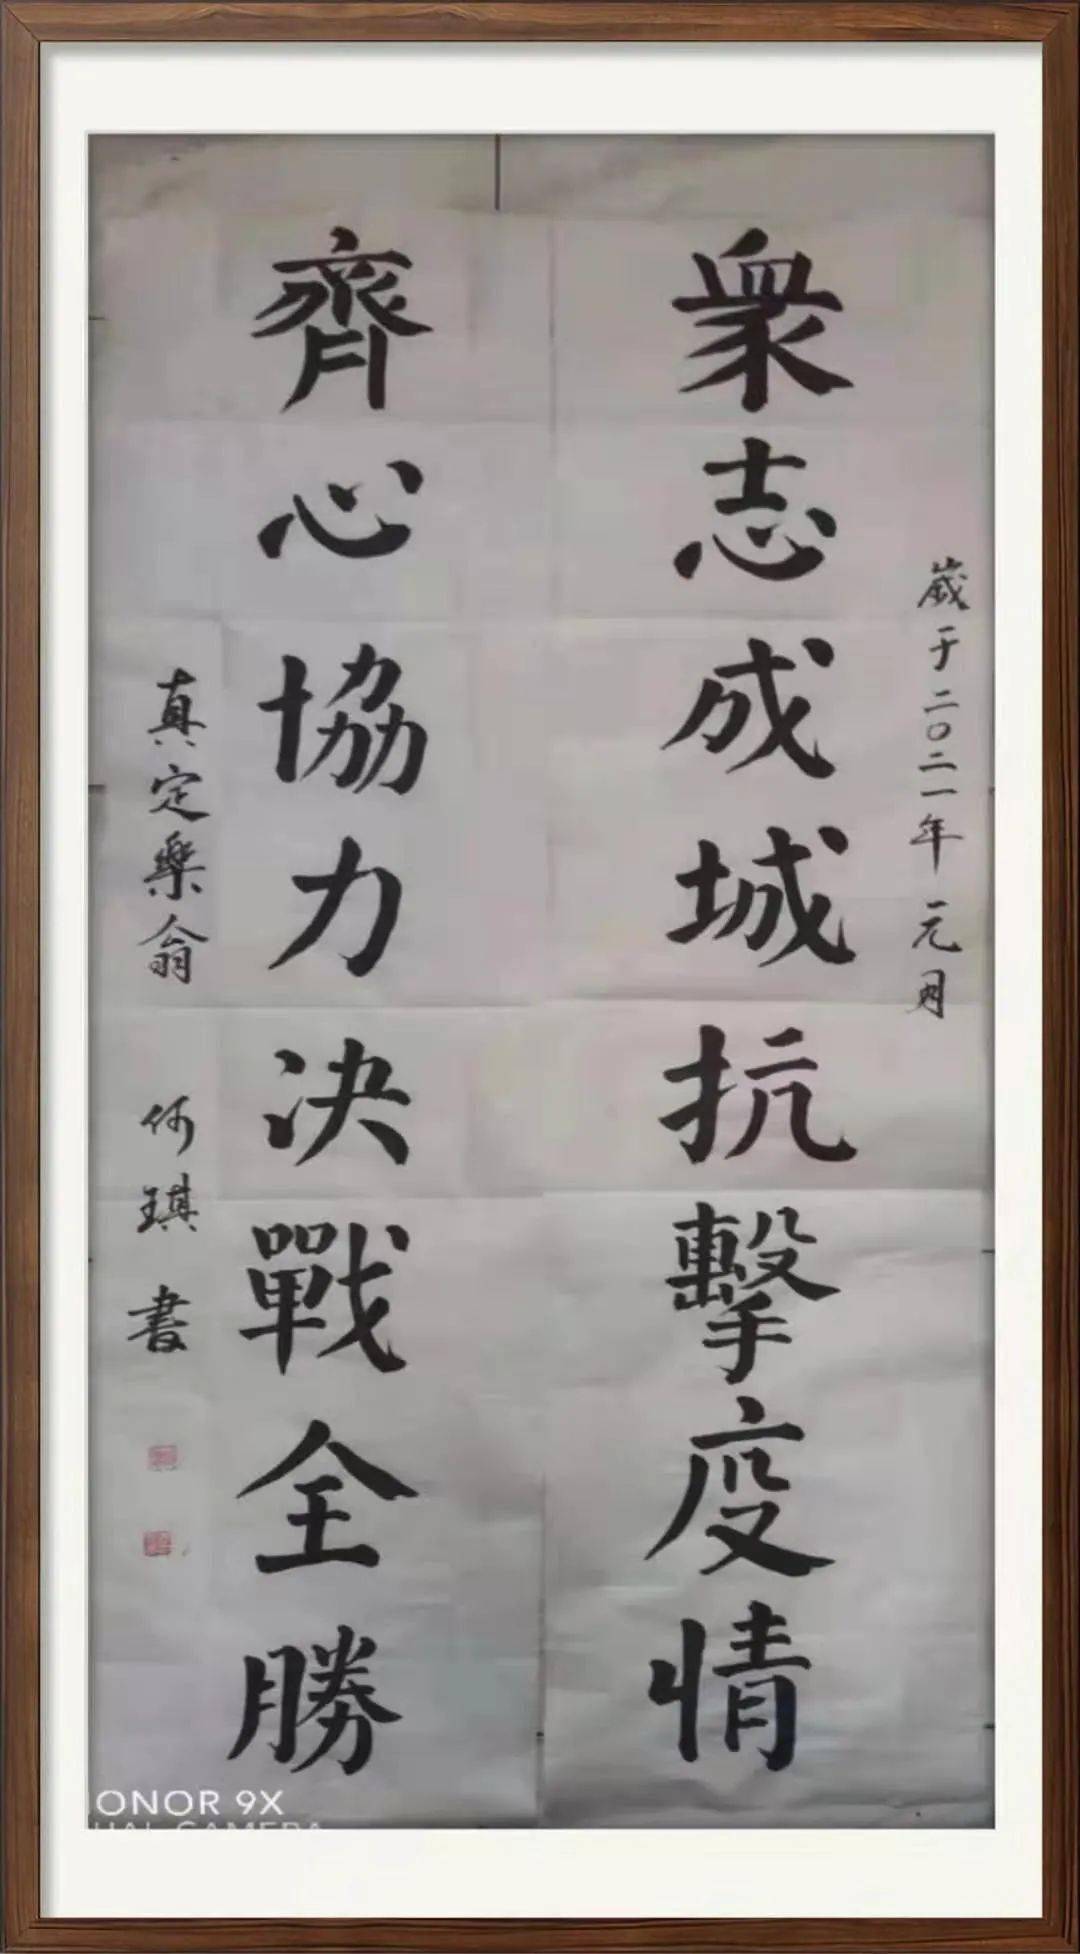 歲于二〇二一年元月
衆志成城抗擊疫情
齊心協力決戰全勝
真定樂翁 何琪書
HONOR 9X
DUAL CAMERA